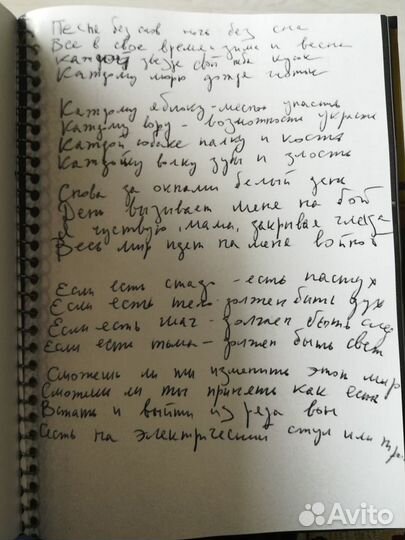 Песня без слов ночь без сна
Все в свое время - зима и весна
Каждой звезде свой неба кусок
Каждому морю дождя глоток
Каждому яблоку - место упасть
Каждому вору - возможность украсть
Каждой собаке палку и кость
Каждому волку зубы и злость
Снова за окнами белый день
День вызывает меня на бой
Я чувствую, мама, закрывая глаза
Весь мир идет на меня войной
Если есть стадо - есть пастух
Если есть тело - должен быть дух
Если есть шаг - должен быть след
Если есть тьма - должен быть свет
Сможешь ли ты изменить этот мир
Сможешь ли ты принять как есть
Встать и выйти из ряда вон
Сесть на электрический стул или
Avito